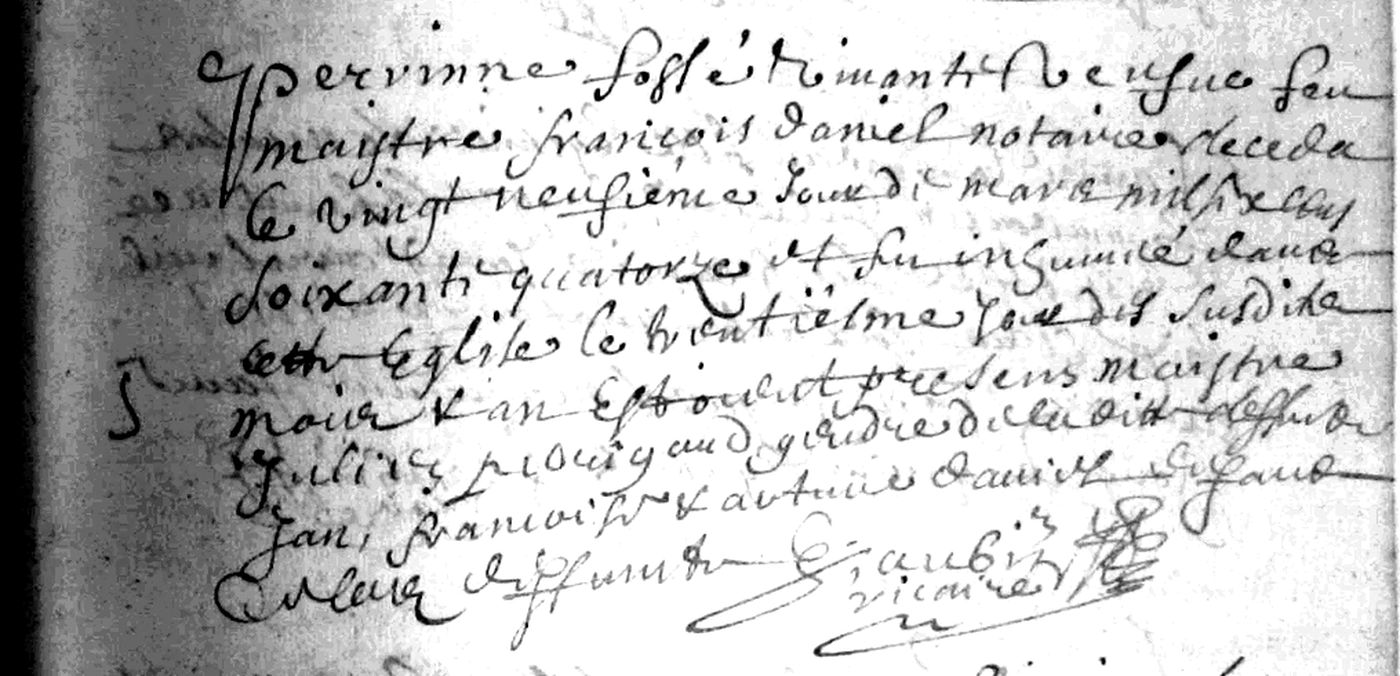 perrinne fossé vivante veufue feu
maistre francois daniel notaire deceda
le vingt neufieme jour de mars mil six cens
soixante quatorze et fu inhumée dans
cette Eglise le trentiesme jour des susdits
mois & an Estoient presens maistre
Julien gendre de la ditte deffunte
Jan, francois & antoine daniel enfans
de la ditte deffunte
vicaire